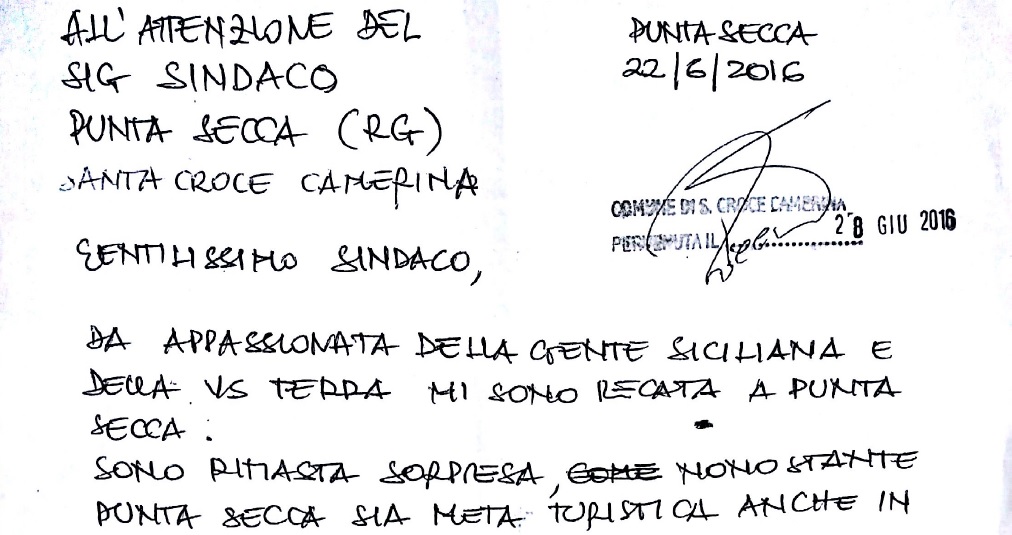 ALL'ATTENZIONE DEL
SIG SINDACO
PUNTA SECCA (RG)
SANTA CROCE CAMERINA
PUNTA SECCA
22/6/2016
COMUNE DI S. CROCE CAMERINA
PERVENUTA IL 28 GIU 2016
GENTILISSIMO SINDACO,
DA APPASSIONATA DELLA GENTE SICILIANA E
DELLA VS TERRA MI SONO RECATA A PUNTA
SECCA.
SONO RIMASTA SORPRESA, COME NONOSTANTE
PUNTA SECCA SIA META TURISTICA ANCHE IN